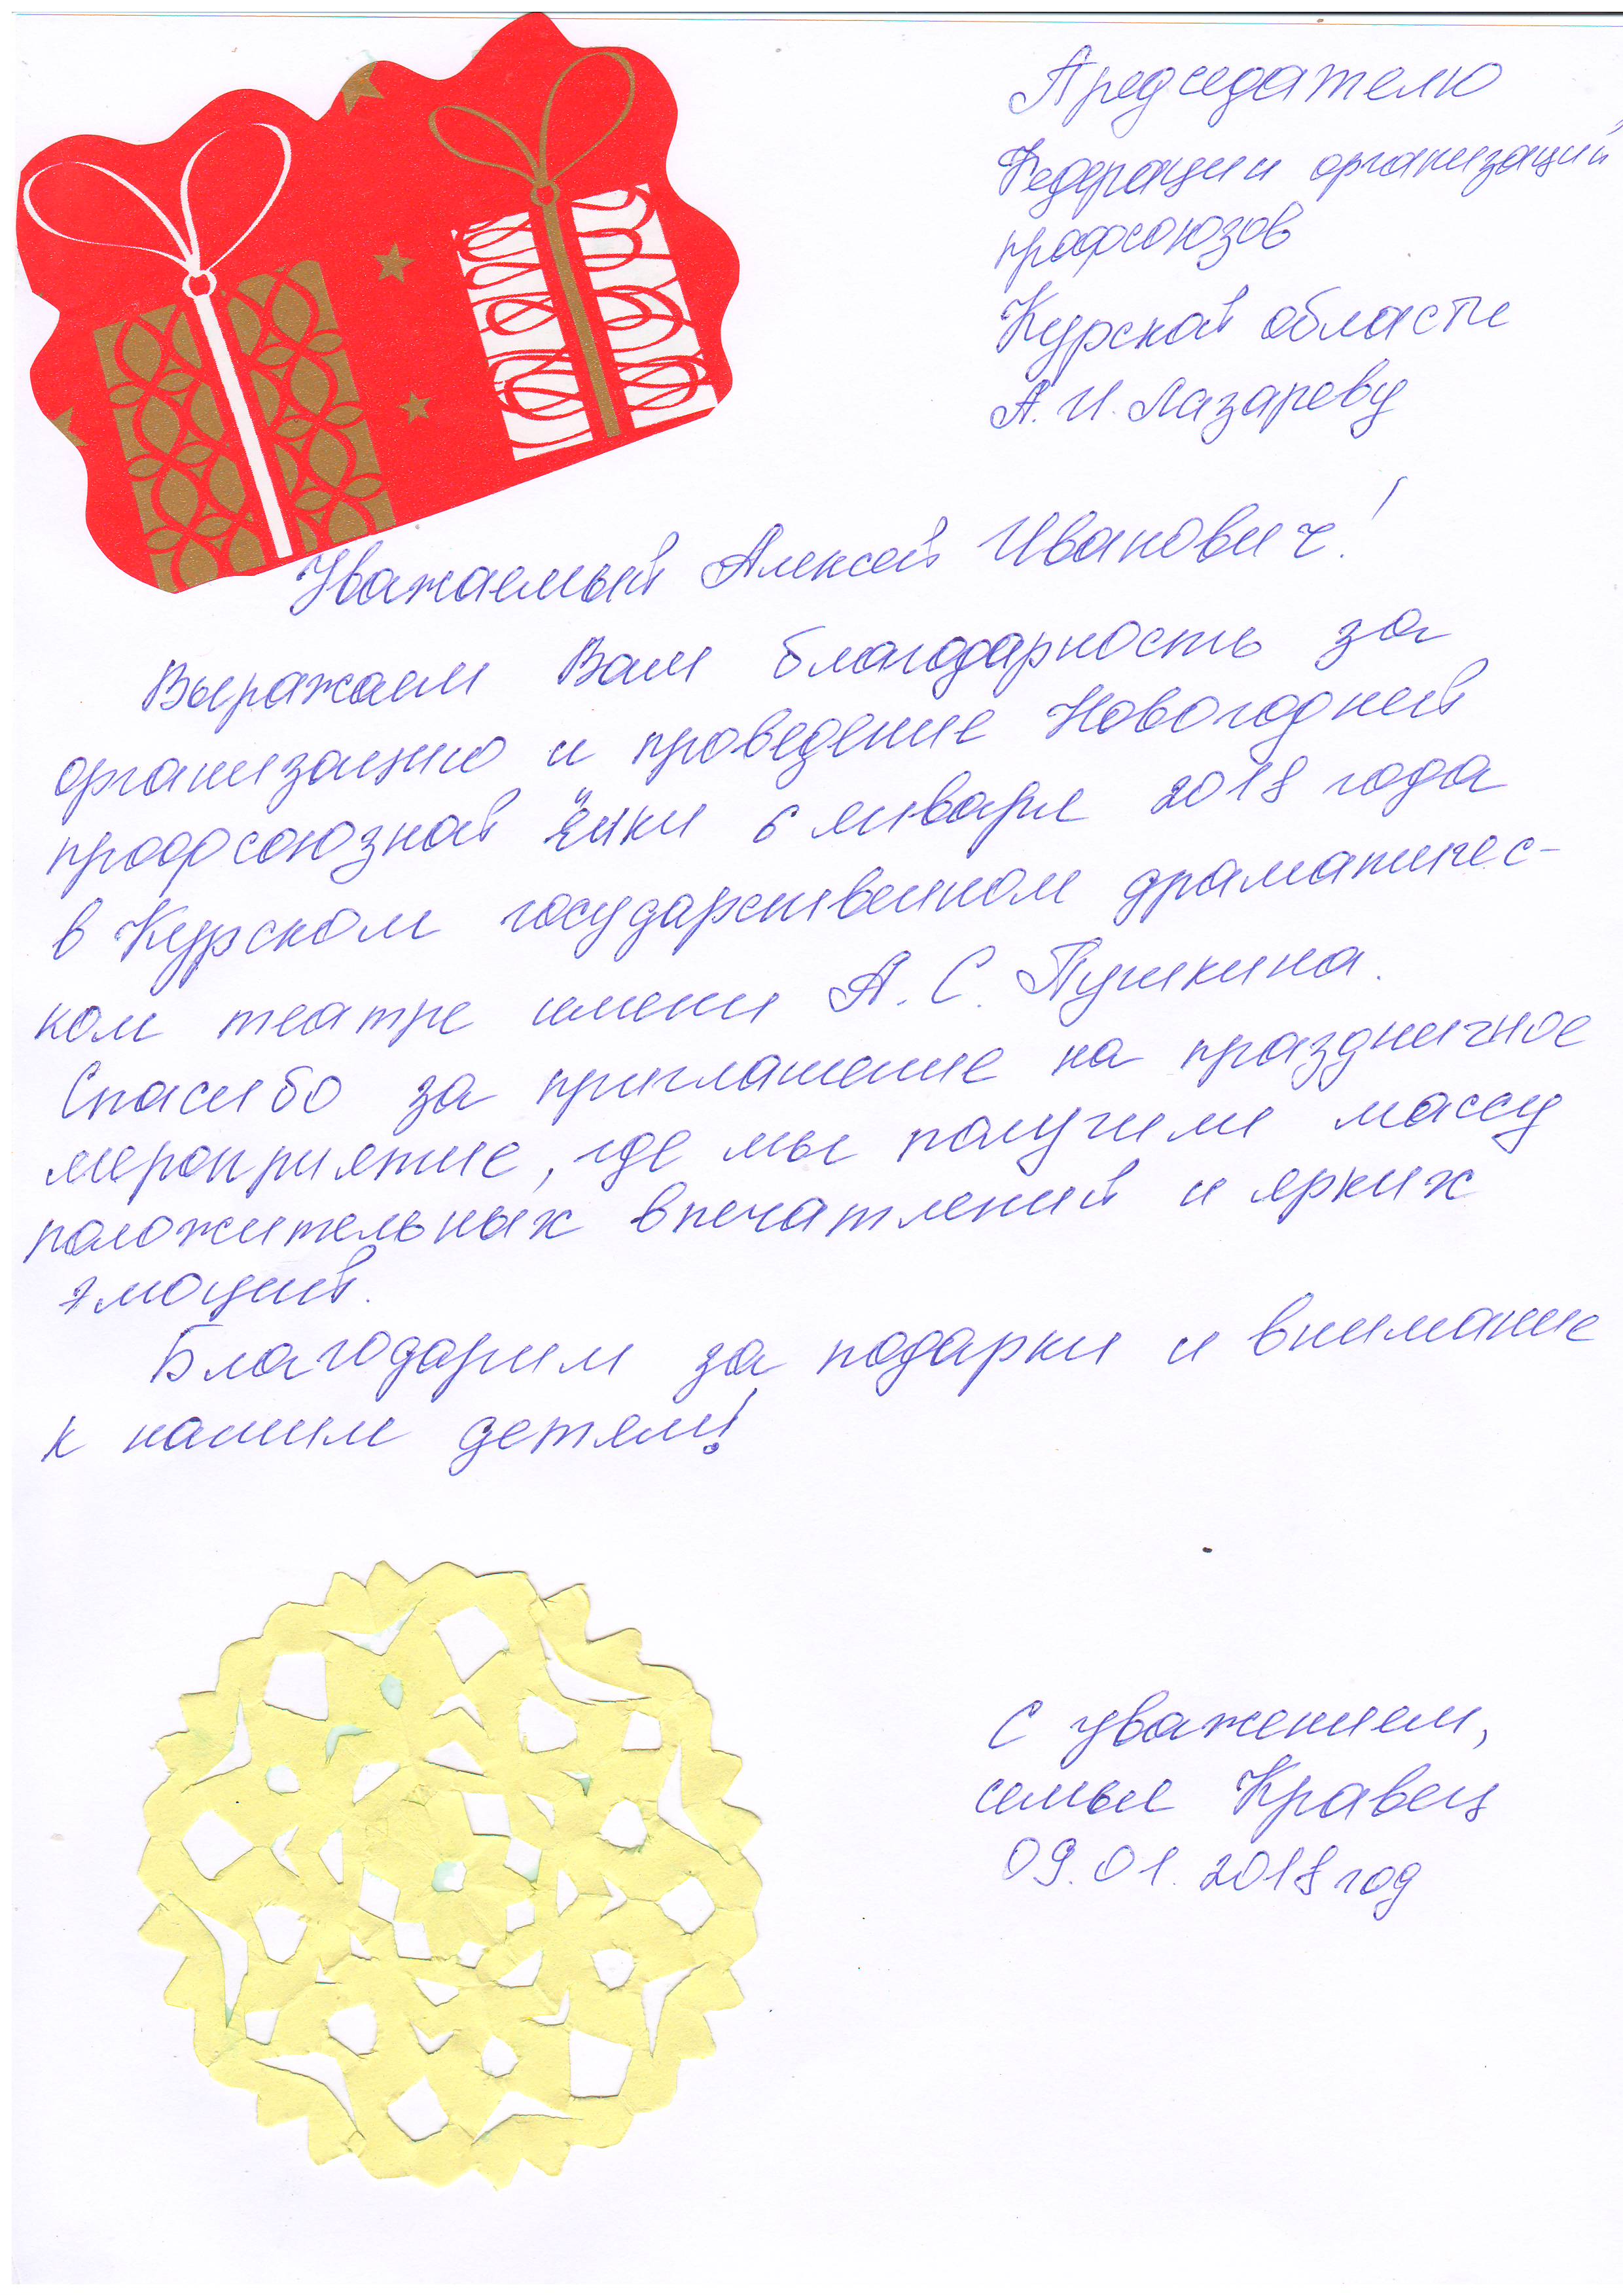 Председателю
Федерации организаций
профсоюзов
Курской области
А. И. Лазареву
Уважаемый Алексей Иванович!
Выражаем Вам благодарность за
организацию и проведение Новогодней
профсоюзной ёлки 6 января 2018 года
в Курском государственном драматичес-
ком театре имени А. С. Пушкина.
Спасибо за приглашение на праздничное
мероприятие, где мы получили массу
положительных впечатлений и ярких
эмоций.
Благодарим за подарки и внимание
к нашим детям!
С уважением,
семья Кравец
09.01.2018 год